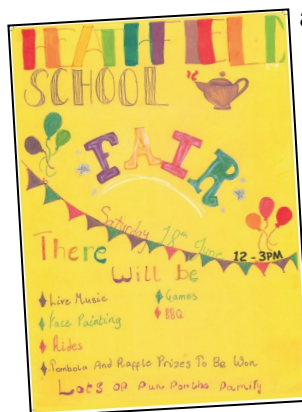 HEATHFIELD
SCHOOL
FAIR
Saturday 18th June
12 - 3PM
There
Will be
Live Music
Games
Face Painting
BBQ
Rides
Tombola And Raffle Prizes To Be Won
Lots of Fun For the Family